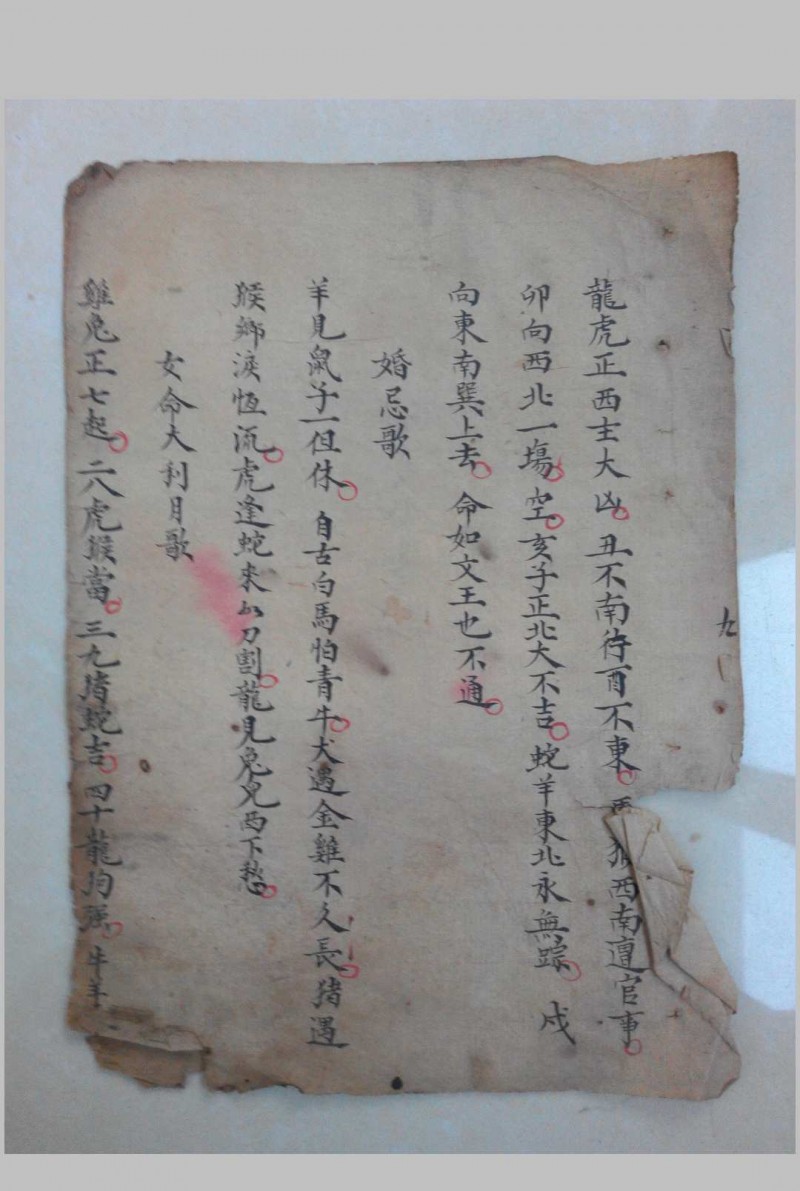 九
龍虎正西主大凶。丑不南行酉不東。猴西南遭官事。
卯向西北一場空。亥子正北大不吉。蛇羊東北永無踪。戌
向東南巽上去。命如文王也不通。
婚忌歌
羊見鼠子一但休。自古白馬怕青牛。犬遇金雞不久長。猪遇
猴鄉淚恆流。虎逢蛇來似刀割。龍見兔兒西下愁。
女命大利月歌
雞兔正七起。二八虎猴當。三九猪蛇吉。四十龍狗強。牛羊